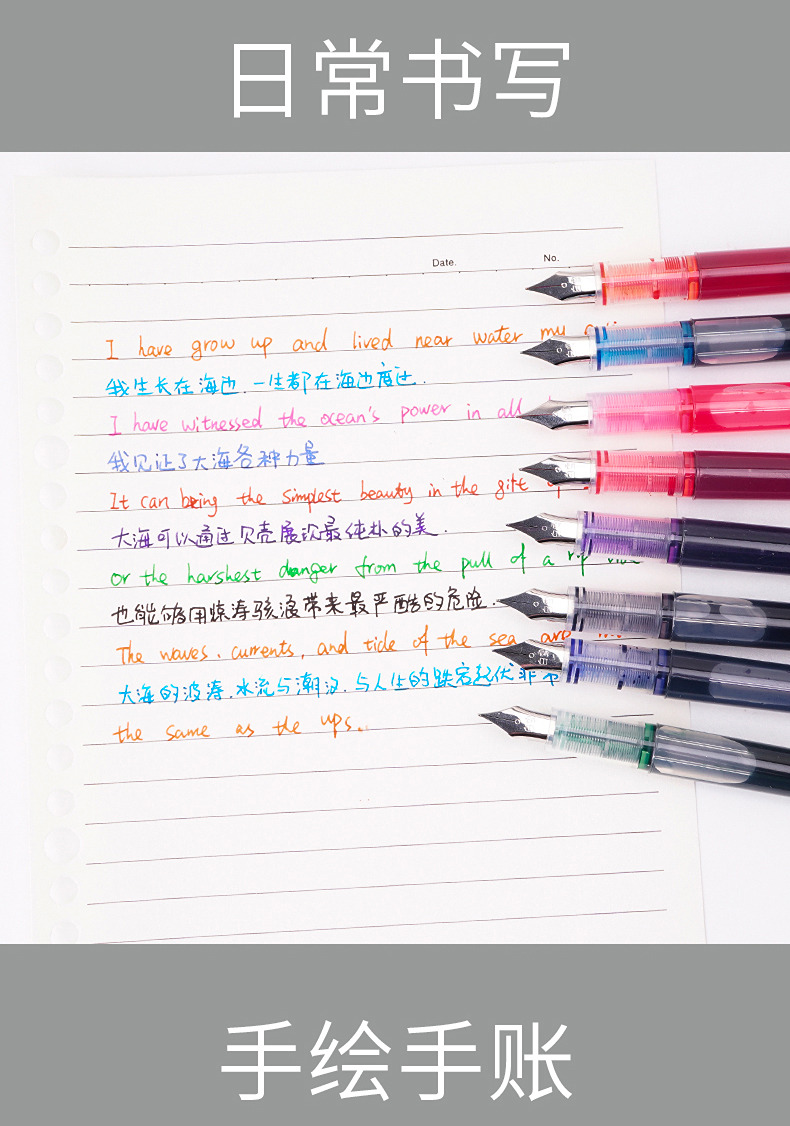 日常书写
Date. No.
I have grow up and lived near water my
我生长在海边.一生都在海边度过.
I have witnessed the ocean's power in all
我见证了大海各种力量
It can being the simplest beauty in the gift
大海可以通过贝壳展次最纯朴的美.
or the harshest danger from the pull of a rip
也能够用惊涛骇浪带来最严酷的危险.
The waves. currents, and tide of the sea are
大海的波涛.水流与潮汐.与人生的跌宕起伏非
the same as the ups.
手绘手账